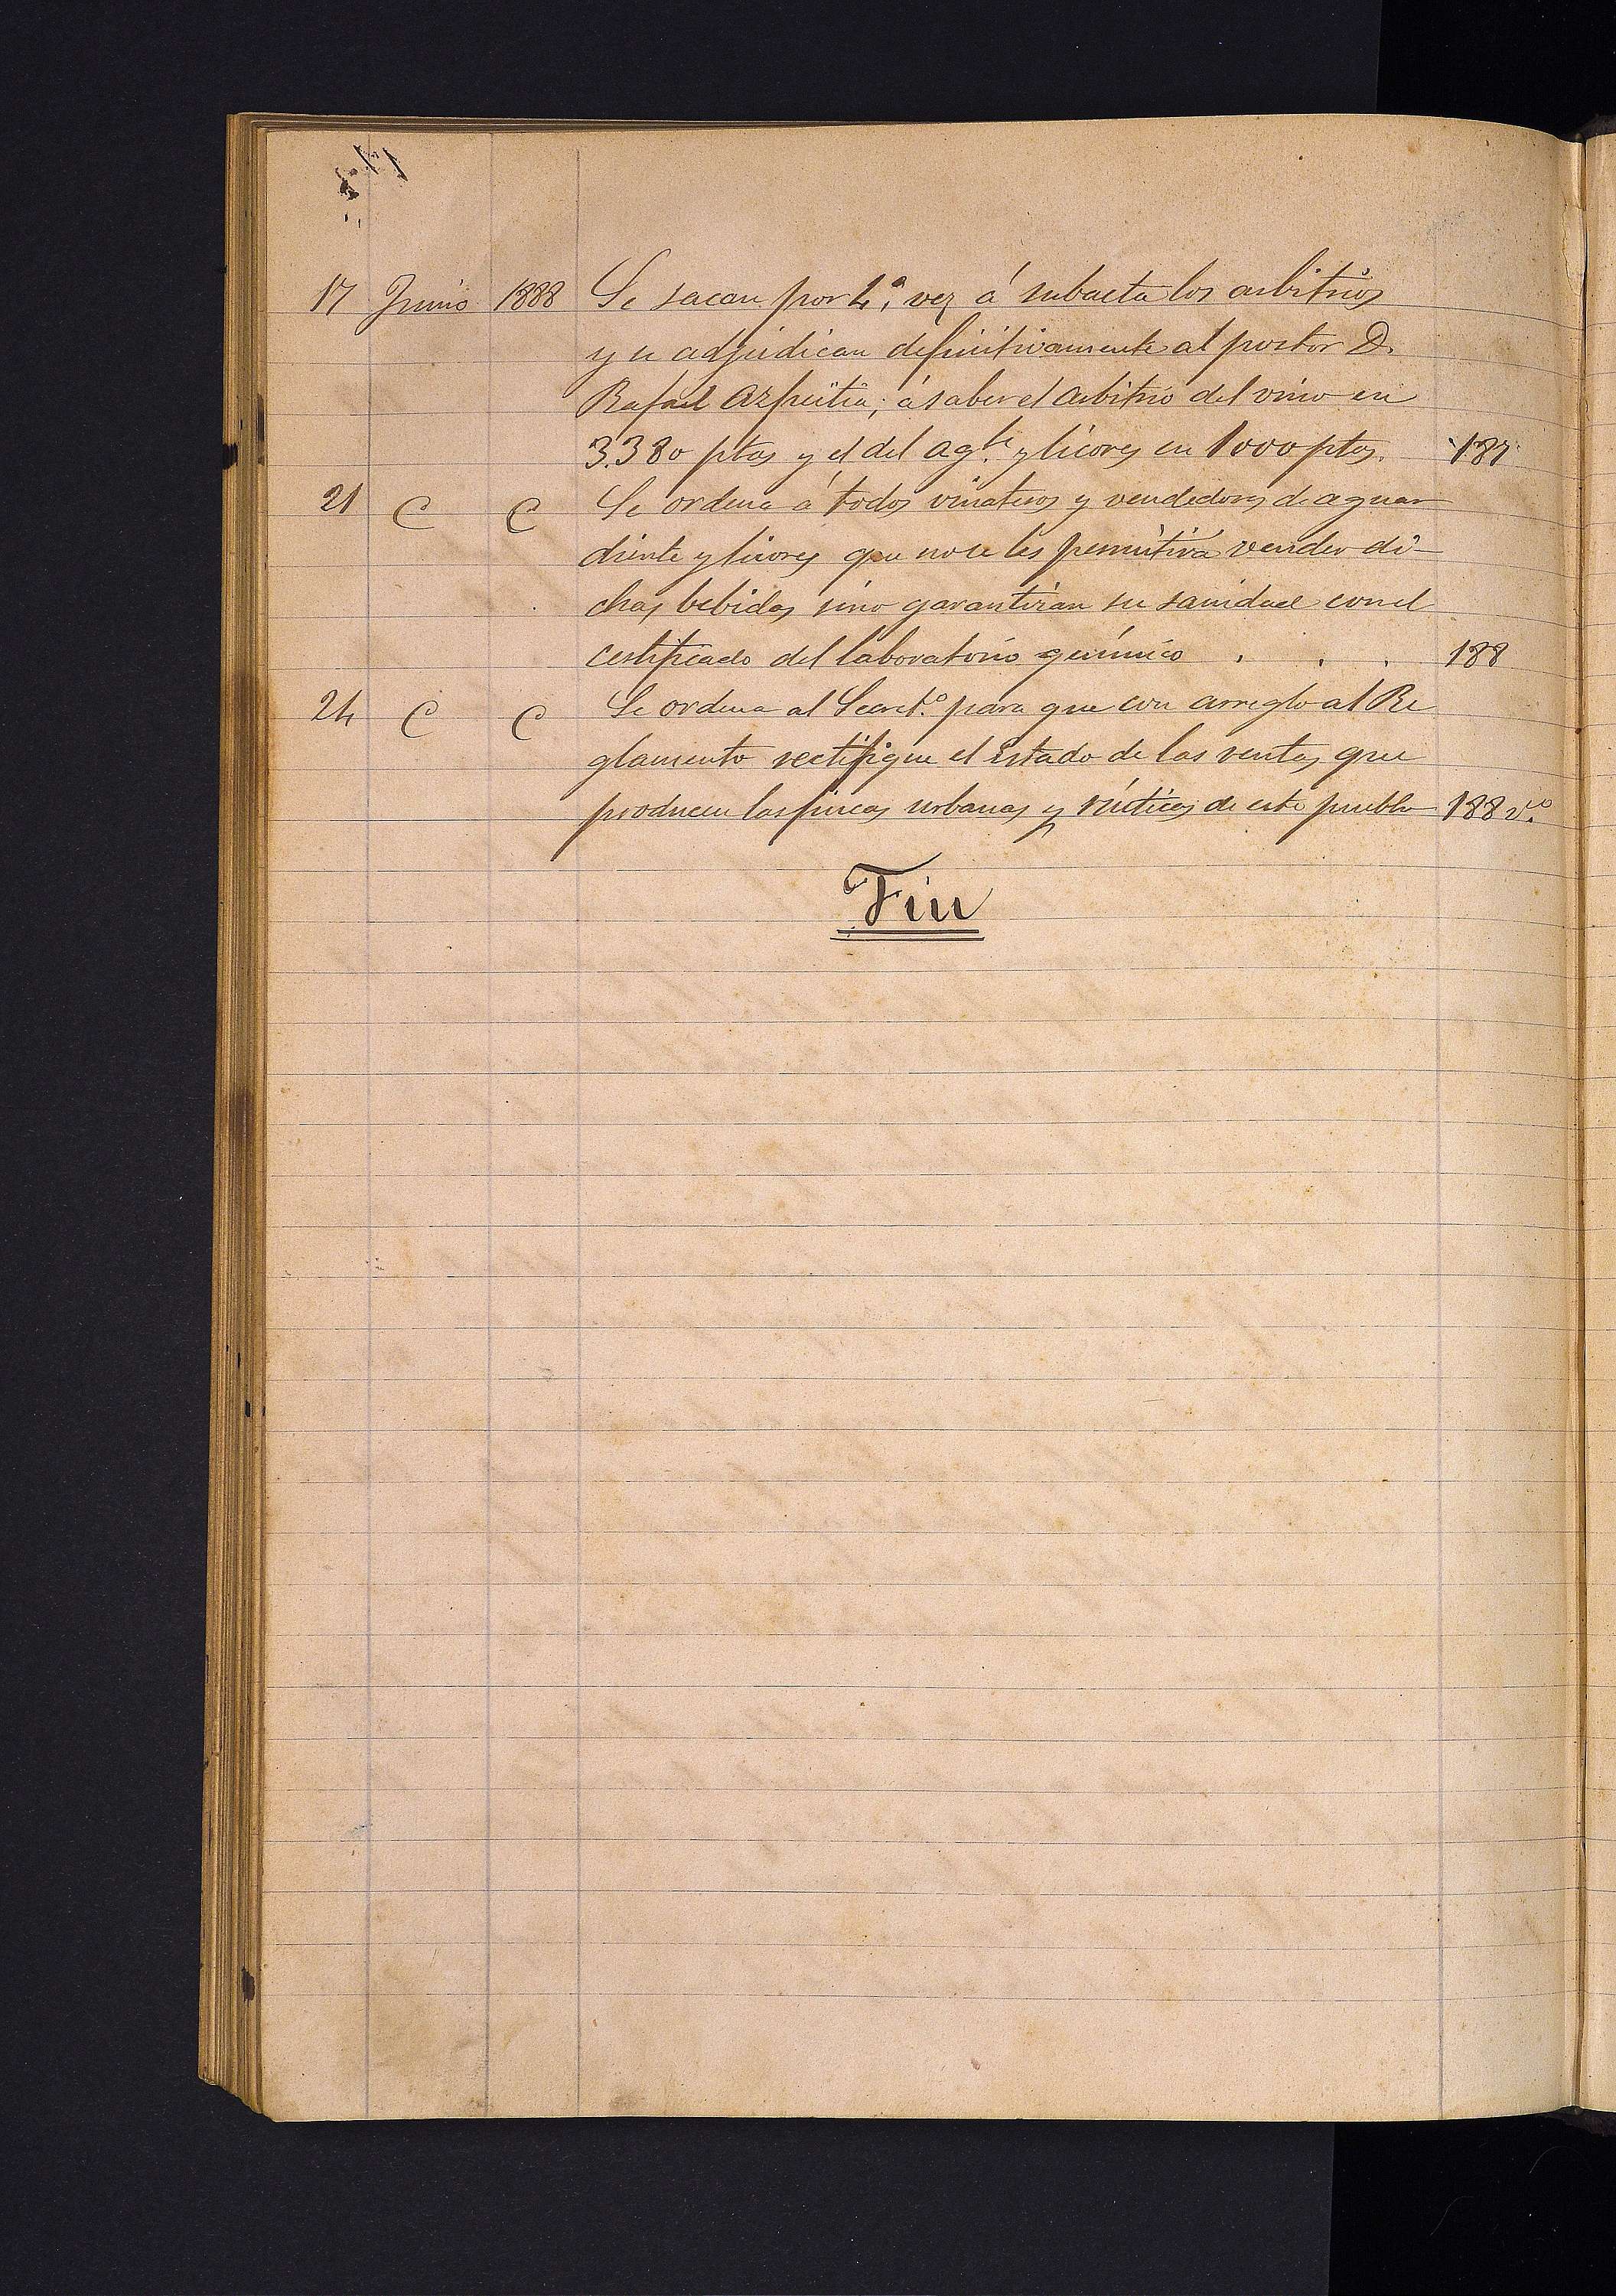 17 Junio 1888 Se sacan por 4ª vez á subasta los arbitrios
y se adjudican definitivamente al postor D.
Rafael Azpeitia; á saber el arbitrio del vino en
3.380 ptas y el del agte. y licores en 1000 ptas. 187
21 C C Se ordena á todos vinateros y vendedores de aguar
diente y licores que no se les permitirá vender di-
chas bebidas sino garantizan su sanidad con el
certificado del laboratorio químico . . . 188
24 C C Se ordena al Secret.º para que con arreglo al Re
glamento rectifique el estado de las ventas que
producen las fincas urbanas y rústicas de este pueblo 188 v.to
Fin